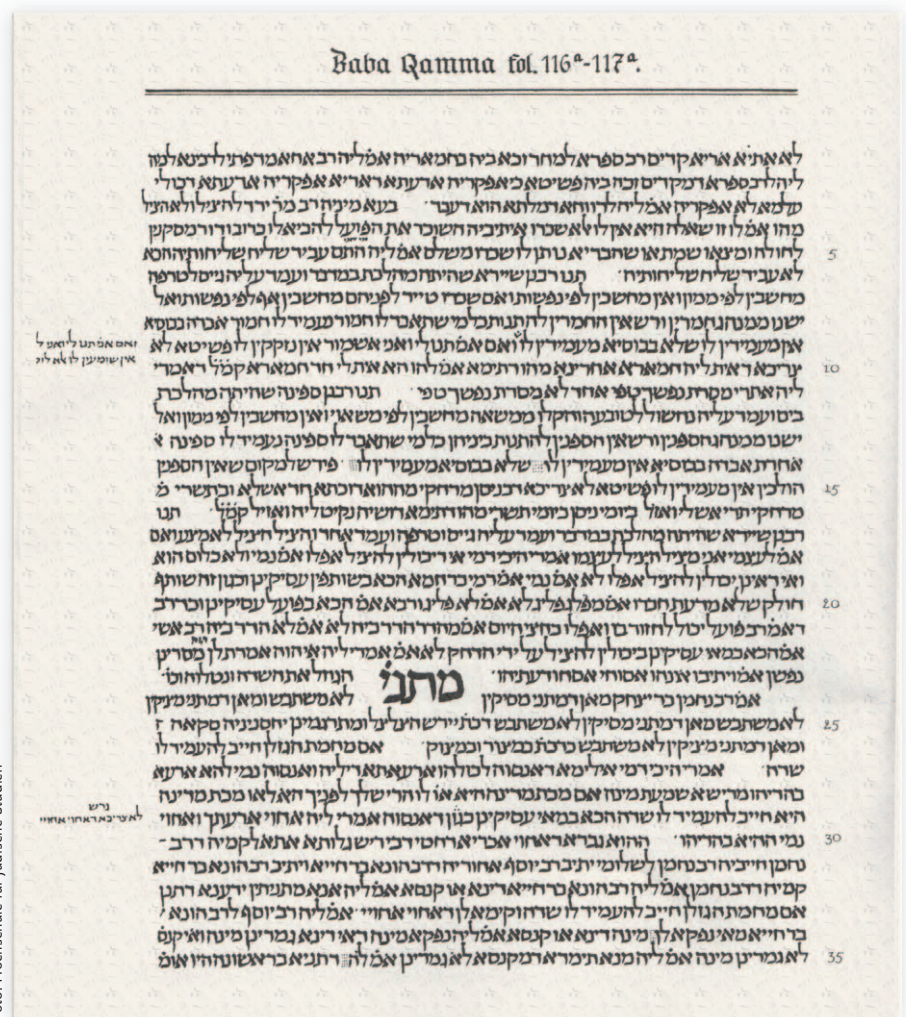 Baba Qamma fol. 116ª-117ª.
לא אתיא אריא קדים רב ספרא למחר וזכא ביה בחמאריה אמ' ליה רב אחא למה
ליה לרב ספרא דמקדים זכה ביה פשיטא כי אפקריה ארעתא דאריא אפקריה ארעתא דכולי
עלמא לא אפקריה אמ' ליה לרווחא דמלתא הוא דעבד בעא מיניה רב מר' ירד להציל ולא הציל
מהו אמ' לו זו שאלה היא אין לו אלא שכרו איתיביה השוכר את הפועל להביא לו כרוב ודורמסקנין
לחולה ומצאו שמת או שהבריא נותן לו שכרו משלם אמ' ליה התם עביד שליח שליחותיה הכא
לא עביד שליח שליחותיה תנו רבנן שיירא שהיתה מהלכת במדבר ועמד עליה גייס לטרפה
מחשבין לפי ממון ואין מחשבין לפי נפשות ואם שכרו טייר לפניהם מחשבין אף לפי נפשות ואל
ישנו ממנהג חמרין ורשאין החמרין להתנות כל מי שתאבד לו חמור נעמיד לו חמור אבדה בכוסיא
אין מעמידין לו שלא בכוסיא מעמידין לו ואם אמ' תנו לי ואני אשמור אין נזקקין לו פשיטא לא
צריכא דאית ליה חמארא אחרינא מהו דתימא אמ' להו הא אית לי חד חמארא קמ'ל דאמרי
ליה אחרי מסרת נפשך טפי אחד לא מסרת נפשך טפי תנו רבנן ספינה שהיתה מהלכת
בים ועמד עליה נחשול לטובעה והקלו ממשאה מחשבין לפי משאוי ואין מחשבין לפי ממון ואל
ישנו ממנהג הספנין ורשאין הספנין להתנות ביניהן כל מי שתאבד לו ספינה נעמיד לו ספינה א
אחרת אבדה בכוסיא אין מעמידין לו שלא בכוסיא מעמידין לו פירש למקום שאין הספנין
הולכין אין מעמידין לו פשיטא לא צריכא דבניסן מרחקי מחהוא דוכתא חד אשלא ובתשרי מ
מרחקי תרי אשלי ואזל ביומי ניסן ביומי תשרי מהו דתימא דושיה נקיט ליה ואזיל קמ'ל תנו
רבנן שיירא שהיתה מהלכת במדבר ועמד עליה גייס וטרפה ועמד אחר והציל הציל לאמצע ואם
אמ' לעצמי אני מציל הציל לעצמו אמרי היכי דמי אי דיכולין להציל אפלו אמ' נמי ולא כלום הוא
ואי דאינן יכולין להציל אפלו לא אמ' נמי אמ' רמי בר חמא הכא בשותפין עסיקינן וכגון זה שותף
חולק שלא מדעת חברו אמ' פלג פליג לא אמ' לא פליג ורבא אמ' הכא בפועל עסיקינן וכדרב
דאמ' רב פועל יכול לחזור בו ואפלו בחצי היום אמ' מהדר הדר ביה לא אמ' לא הדר ביה רב אשי
אמ' הכא במאי עסיקינן ביכולין להציל על ידי הדחק לא אמ' אמרי ליה איהוה אמרת לן מסרינן
נפשן אמ' ויתיבו אנחו אסוחי אסח ודעתיהו מתני' הגוזל את השדה ונטלוהו מס'
אמ' רב נחמן בר יצחק מאן דמתני מסיקין לא משתבש ומאן דמתני מציקין
לא משתבש מאן דמתני מסיקין לא משתבש דכת' יירש הצלצל ומתרגמינן יחסניניה סקאה ד
ומאן דמתני מציקין לא משתבש כדכת' במצור ובמצוק אם מחמת הגזלן חייב להעמיד לו
שדה אמרי היכי דמי אילימא דאנסוה לכולהו ארעאתא דליה ואנסוה נמי להא ארעא
בהדיהו מרישא שמעת מינה אם מכת מדינה היא או' לו הרי שלך לפניך האלאו מכת מדינה
היא חייב להעמיד לו שדה הכא במאי עסיקינן כגון דאנסוה אמרי ליה אחוי ארעתך ואחוי
נמי ההיא בהדיהו ההוא גברא דאחוי אכריא דחיטי דבי ריש גלותא אתא לקמיה דרב
נחמן חייביה רב נחמן לשלומי יתיב רב יוסף אחוריה דרב הונא בר חייא ויתיב רב הונא בר חייא
קמיה דרב נחמן אמ' ליה רב הונא בר חייא דינא או קנסא אמ' ליה אנא מתניתין ידענא דתנן
אם מחמת הגזלן חייב להעמיד לו שדה וקימא לן דאחוי אחויי אמ' ליה רב יוסף לרב הונא
בר חייא מאי נפקא לן מינה דינא או קנסא אמ' ליה נפקא מינה דאי דינא גמרינן מינה ואי קנס
לא גמרינן מינה אמ' ליה מנא תימרא דמקנסא לא גמרינן אמ' לה דתניא בראשונה היו אומ
ואם אמ' תנו לי ואני ל
אין שומעין לו לא
גרש
לא צריכא דאחוי אחויי
5
10
15
20
25
30
35